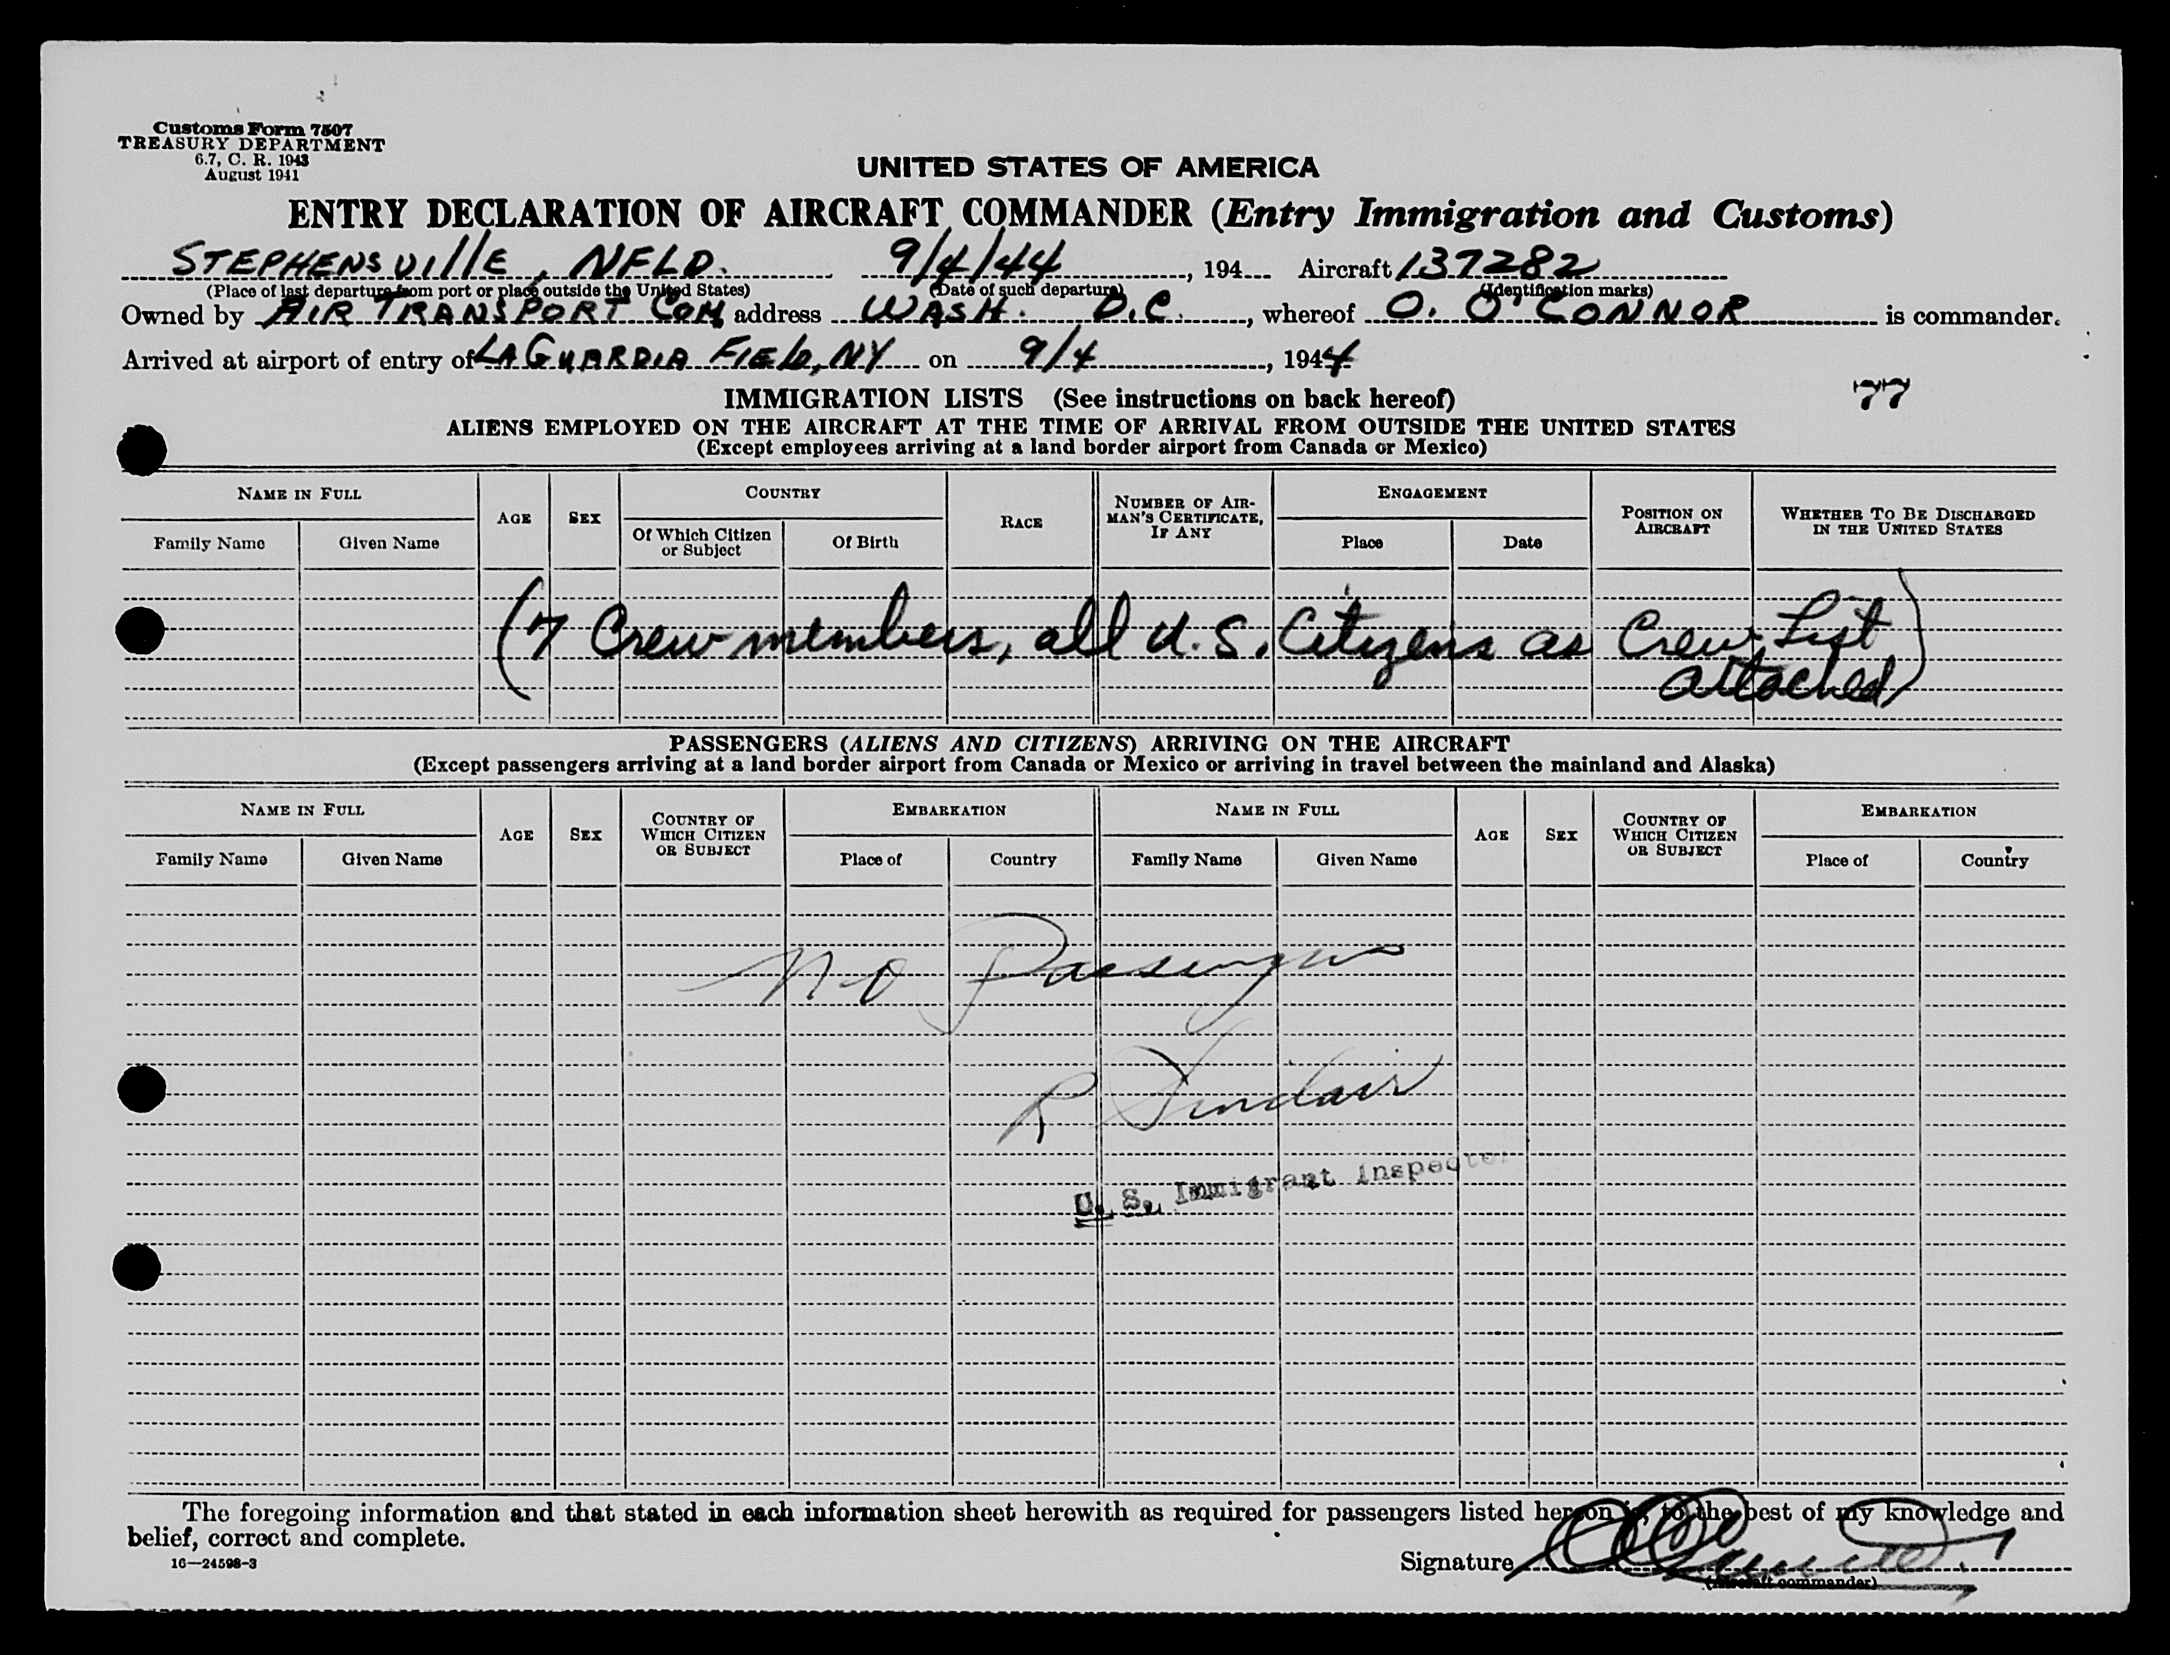 Customs Form 7507
TREASURY DEPARTMENT
6.7, C. R. 1943
August 1941
UNITED STATES OF AMERICA
ENTRY DECLARATION OF AIRCRAFT COMMANDER (Entry Immigration and Customs)
STEPHENSVILLE, NFLD. 9/4/44, 194 Aircraft 137282
(Place of last departure from port or place outside the United States) (Date of such departure) (Identification marks)
Owned by AIR TRANSPORT COM, address WASH. D.C., whereof O. O'CONNOR is commander.
Arrived at airport of entry of LAGUARDIA FIELD, NY on 9/4, 1944
IMMIGRATION LISTS (See instructions on back hereof) 77
ALIENS EMPLOYED ON THE AIRCRAFT AT THE TIME OF ARRIVAL FROM OUTSIDE THE UNITED STATES
(Except employees arriving at a land border airport from Canada or Mexico)
NAME IN FULL AGE SEX COUNTRY RACE NUMBER OF AIRMAN'S CERTIFICATE, IF ANY ENGAGEMENT POSITION ON AIRCRAFT WHETHER TO BE DISCHARGED IN THE UNITED STATES
Family Name Given Name Of Which Citizen or Subject Of Birth Place Date
(7 Crew members, all U.S. Citizens as Crew List
attached)
PASSENGERS (ALIENS AND CITIZENS) ARRIVING ON THE AIRCRAFT
(Except passengers arriving at a land border airport from Canada or Mexico or arriving in travel between the mainland and Alaska)
NAME IN FULL AGE SEX COUNTRY OF WHICH CITIZEN OR SUBJECT EMBARKATION NAME IN FULL AGE SEX COUNTRY OF WHICH CITIZEN OR SUBJECT EMBARKATION
Family Name Given Name Place of Country Family Name Given Name Place of Country
No Passengers
R Sinclair
U. S. Immigrant Inspector
The foregoing information and that stated in each information sheet herewith as required for passengers listed hereon is, to the best of my knowledge and
belief, correct and complete.
16—24598-3
Signature
(Aircraft commander)